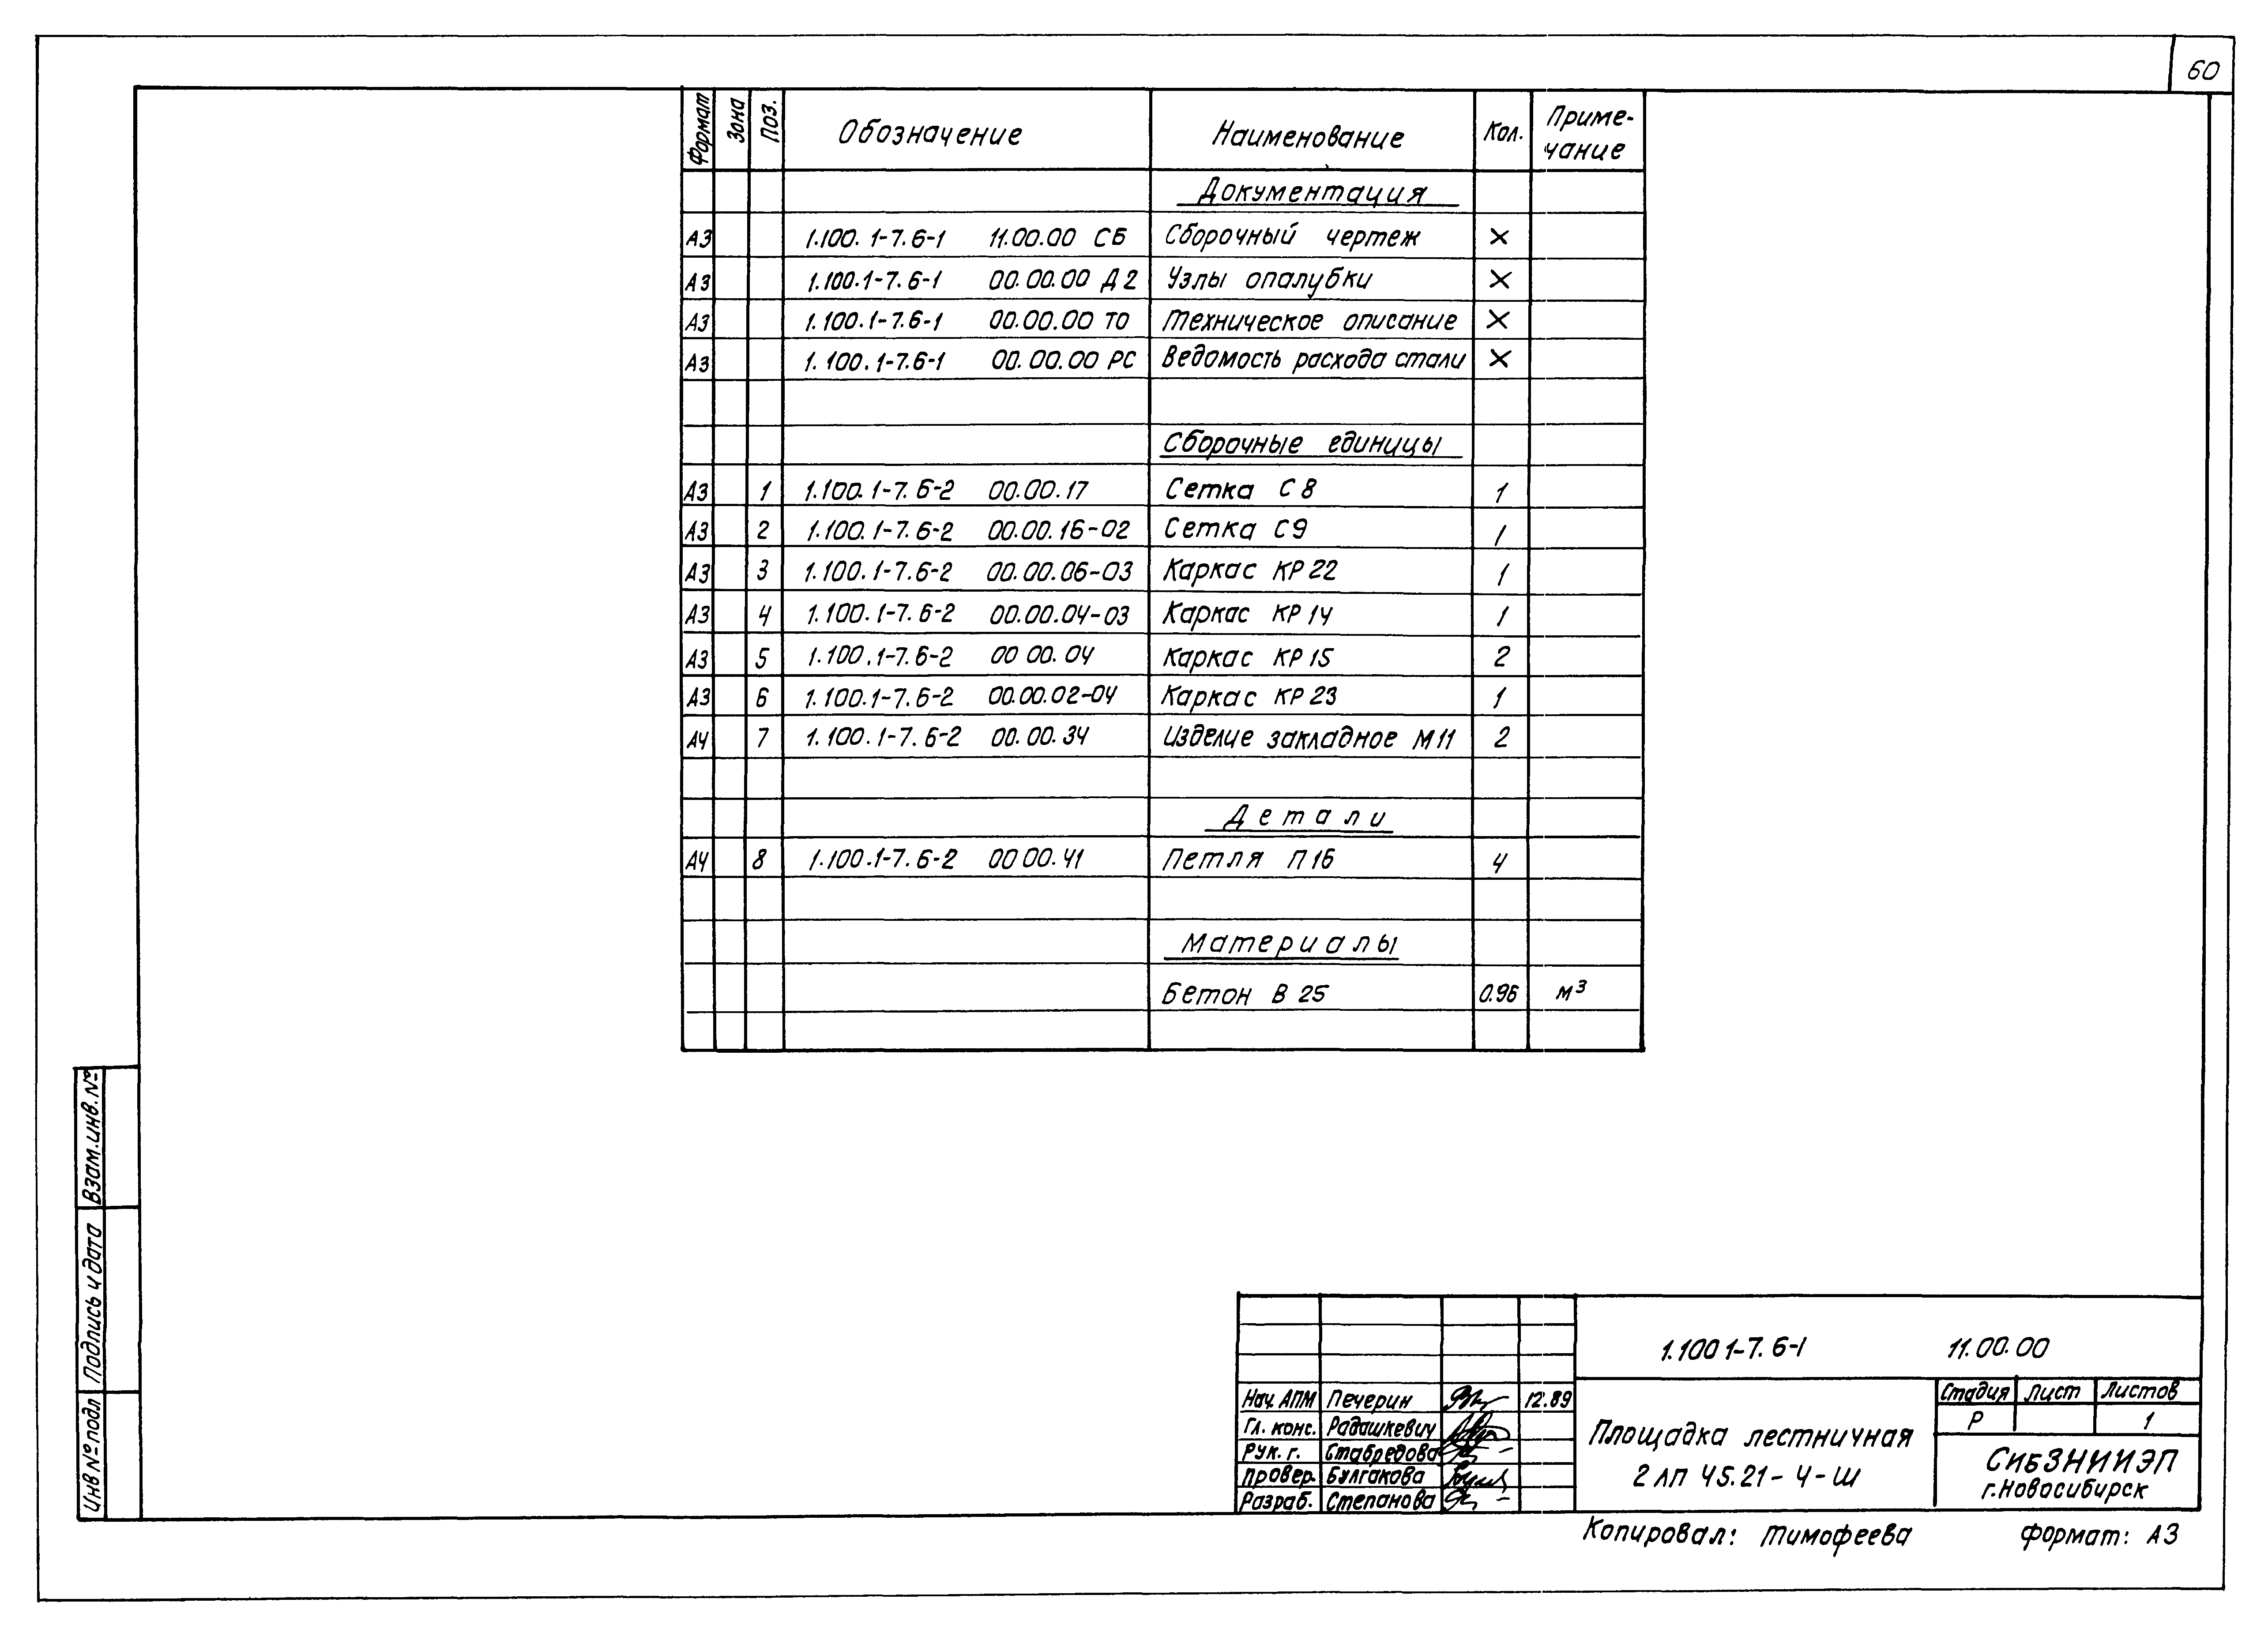 60
Формат Зона Поз. Обозначение Наименование Кол. Приме-
чание
Документация
А3 1.100.1-7.6-1 11.00.00 СБ Сборочный чертеж ×
А3 1.100.1-7.6-1 00.00.00 Д2 Узлы опалубки ×
А3 1.100.1-7.6-1 00.00.00 ТО Техническое описание ×
А3 1.100.1-7.6-1 00.00.00 РС Ведомость расхода стали ×
Сборочные единицы
А3 1 1.100.1-7.6-2 00.00.17 Сетка С8 1
А3 2 1.100.1-7.6-2 00.00.16-02 Сетка С9 1
А3 3 1.100.1-7.6-2 00.00.06-03 Каркас КР22 1
А3 4 1.100.1-7.6-2 00.00.04-03 Каркас КР14 1
А3 5 1.100.1-7.6-2 00 00.04 Каркас КР15 2
А3 6 1.100.1-7.6-2 00.00.02-04 Каркас КР23 1
А4 7 1.100.1-7.6-2 00.00.34 Изделие закладное М11 2
Детали
А4 8 1.100.1-7.6-2 00 00.41 Петля П16 4
Материалы
Бетон В 25 0.96 м³
Взам.инв.№
Подпись и дата
Инв № подл
1.100 1-7.6-1 11.00.00
Нач. АПМ Печерин 12.89
Гл. конс. Радашкевич
Рук. г. Стабредова
Провер. Булгакова
Разраб. Степанова
Площадка лестничная
2 ЛП 45.21-4-Ш
Стадия Лист Листов
Р 1
СибЗНИИЭП
г.Новосибирск
Копировал: Тимофеева Формат: А3